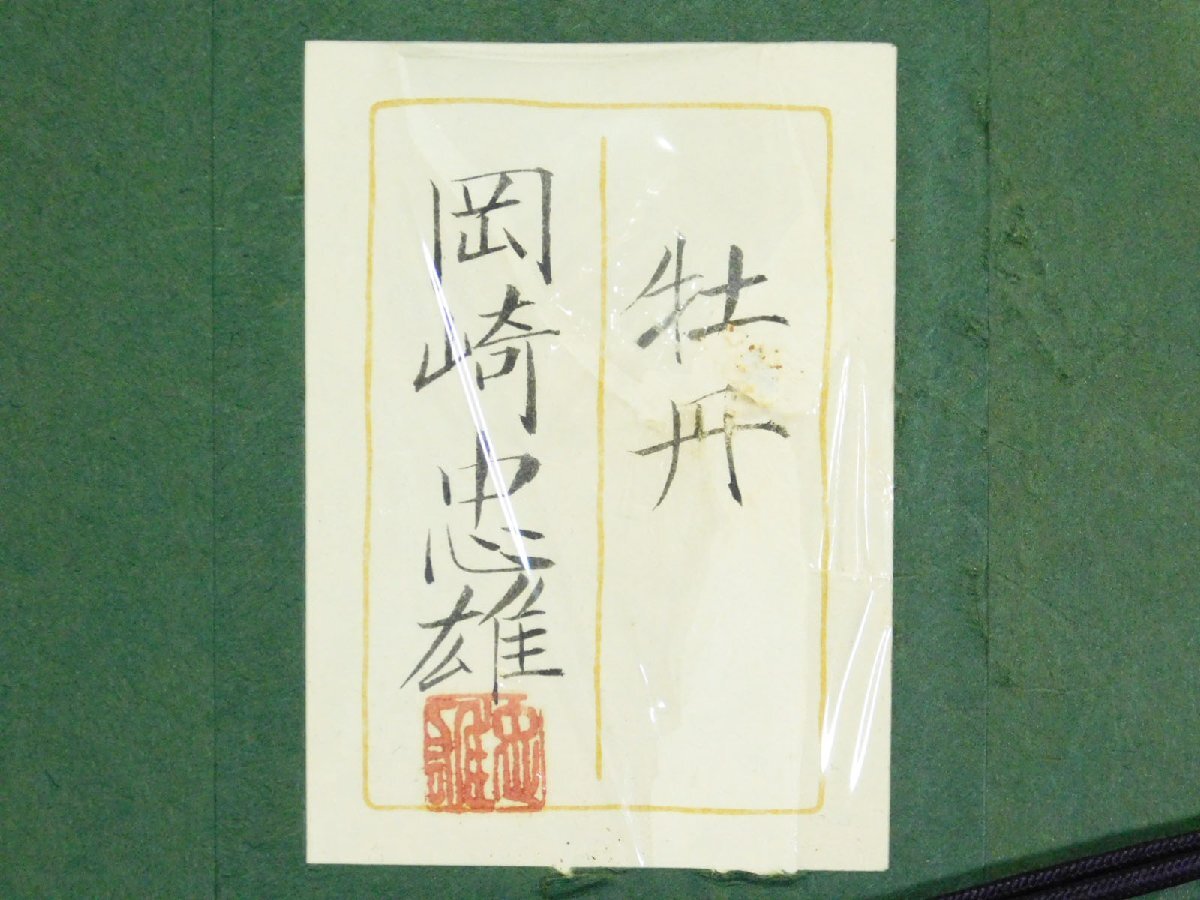 牡丹
岡崎忠雄
忠雄